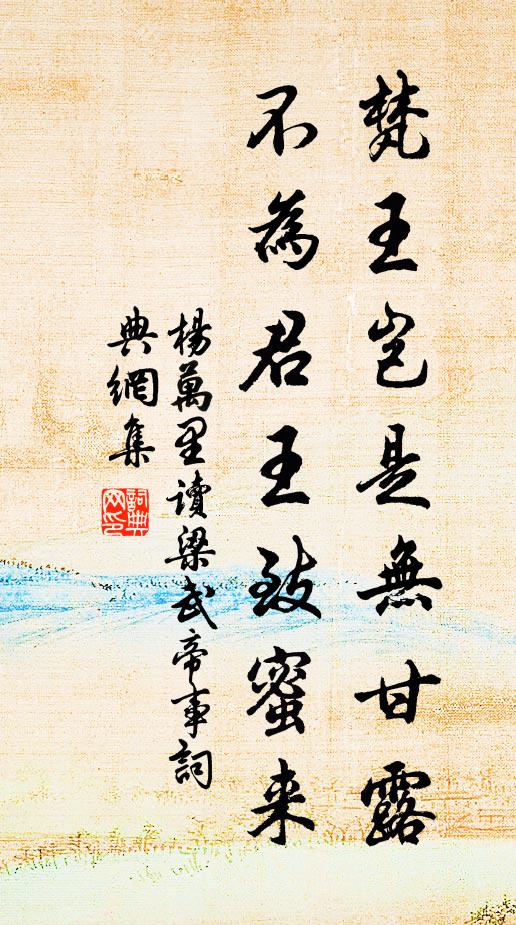 梵王岂是無甘露
不為君王致蜜来
楊萬里讀梁武帝事詞
典網集
詞典網印